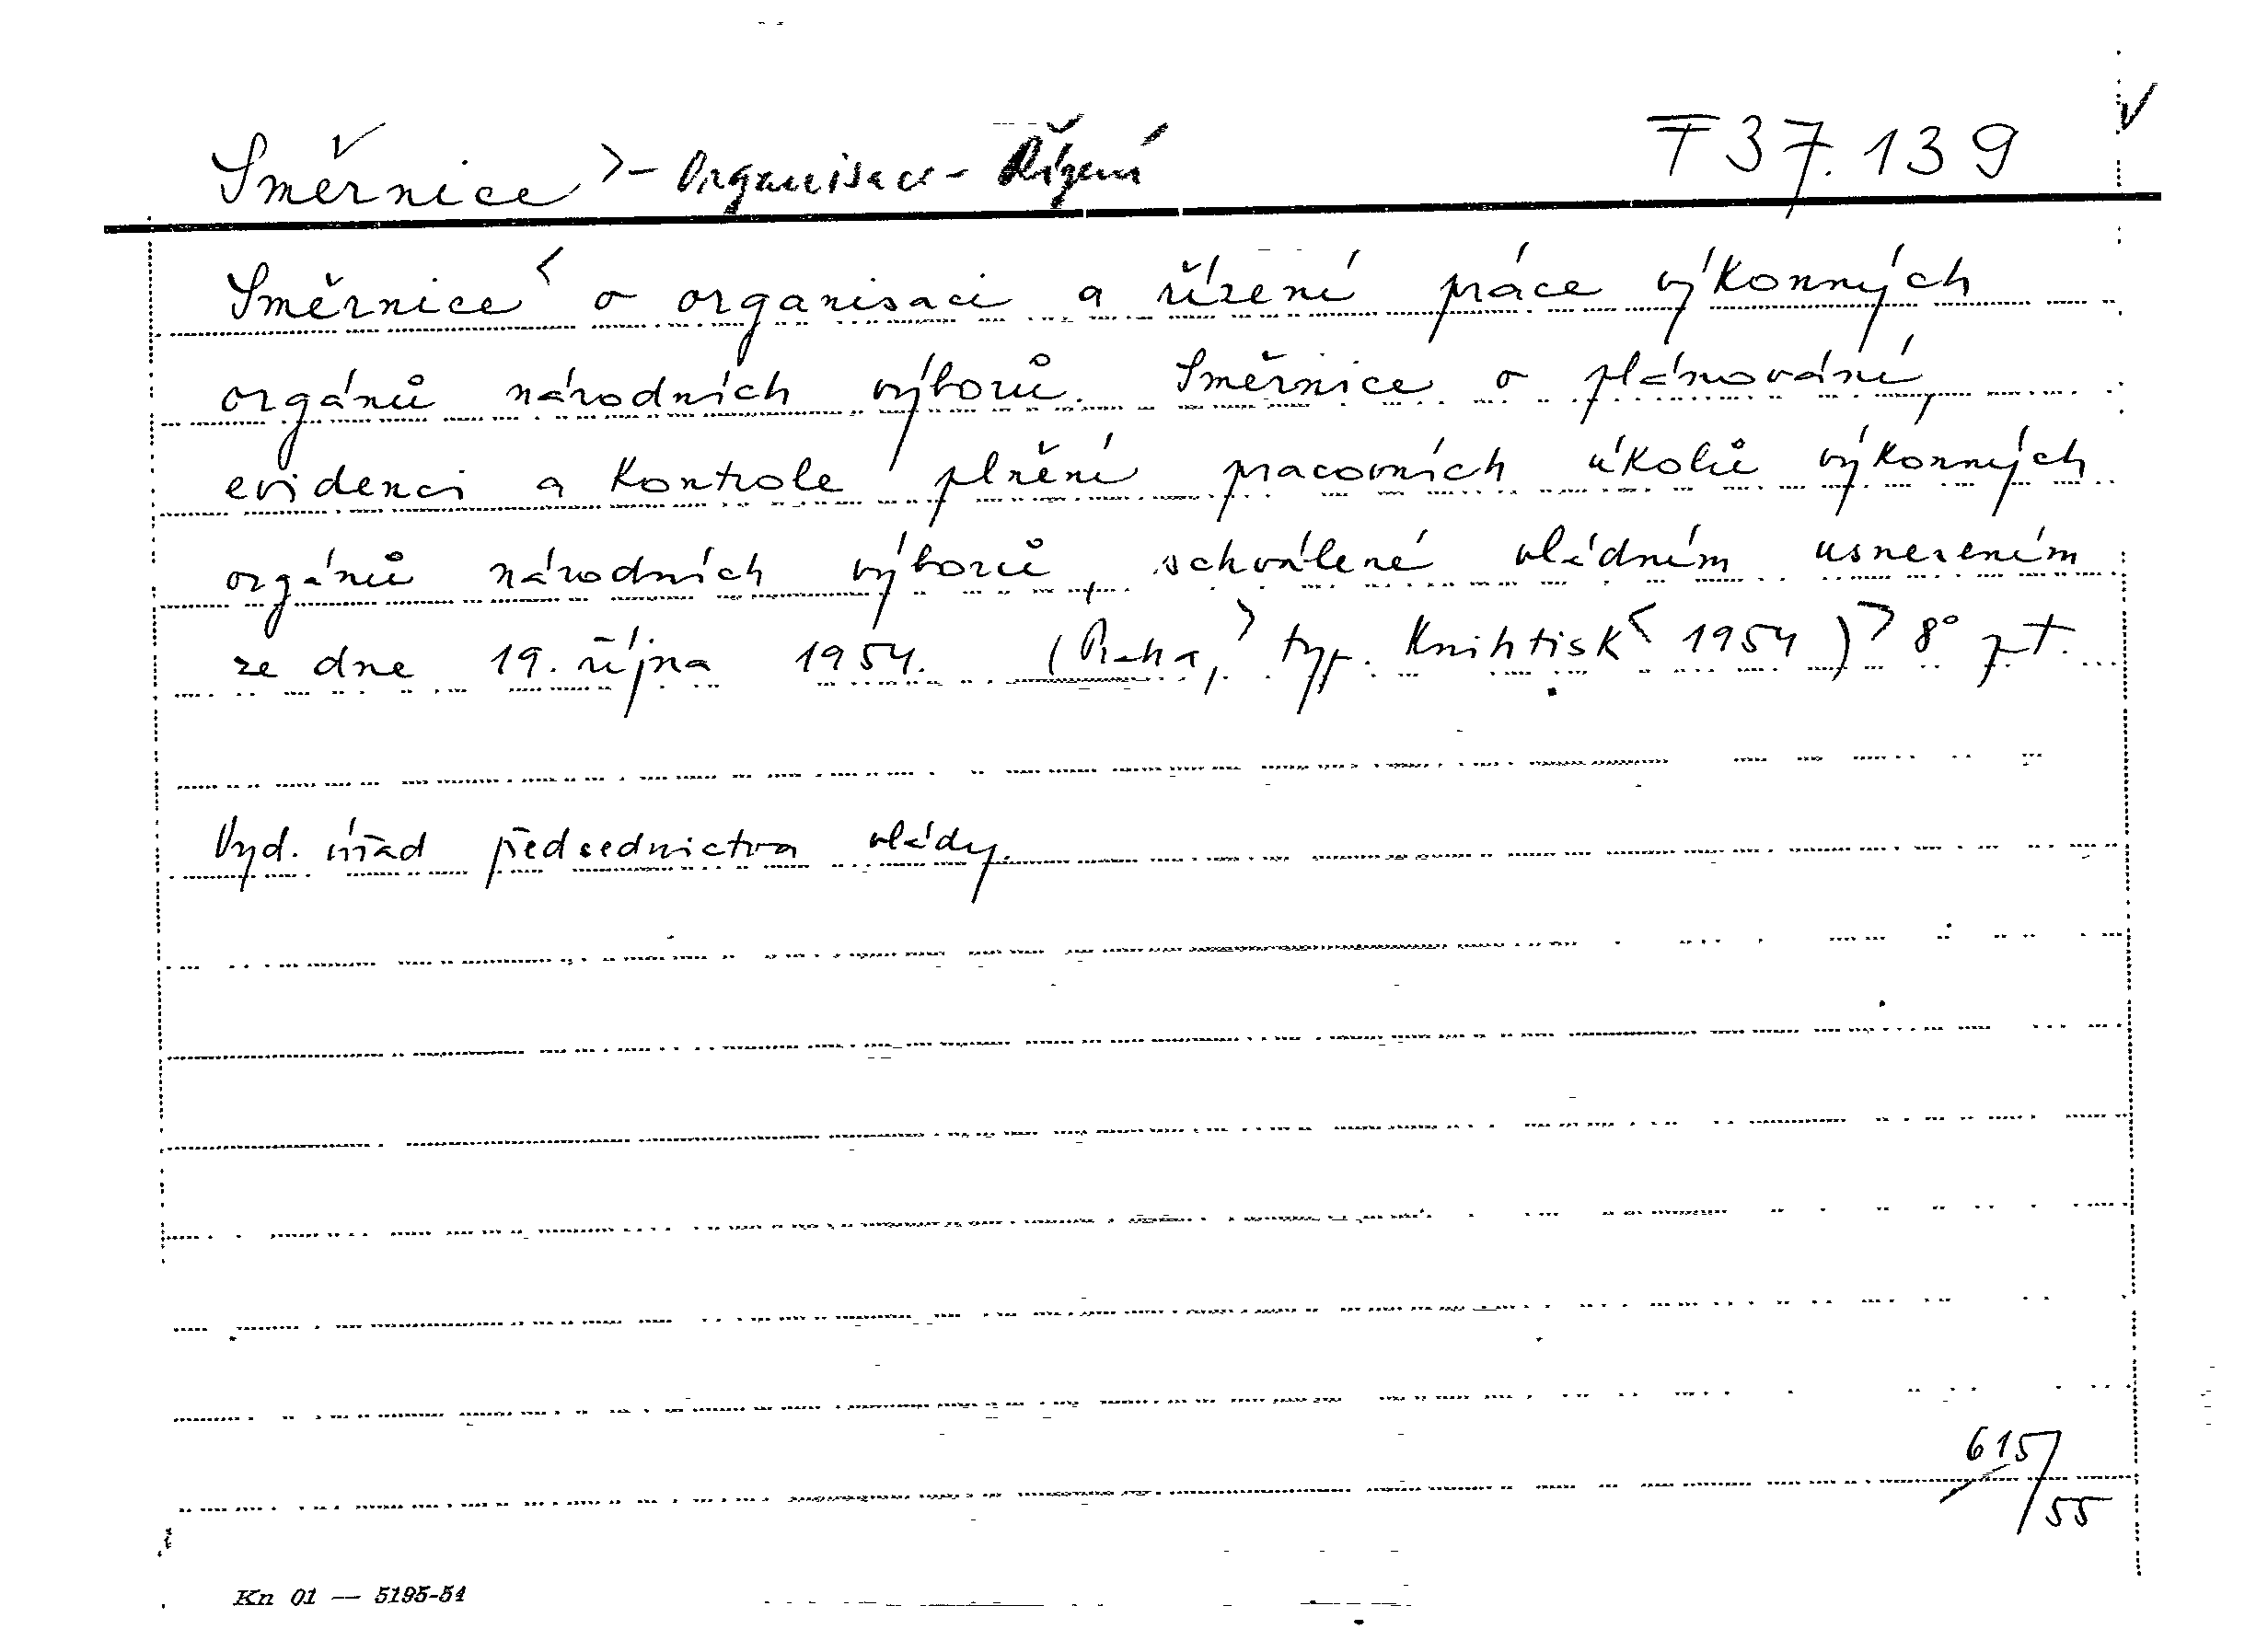 Směrnice >- Organisace - Řízení F 37.139
Směrnice < o organisaci a řízení práce výkonných
orgánů národních výborů. Směrnice o plánování,
evidenci a kontrole plnění pracovních úkolů výkonných
orgánů národních výborů, schválené vládním usnesením
ze dne 19. října 1954. (Praha, > typ. Knihtisk < 1954) > 8°
Vyd. úřad předsednictva vlády.
615/55
Kn 01 — 5195-54